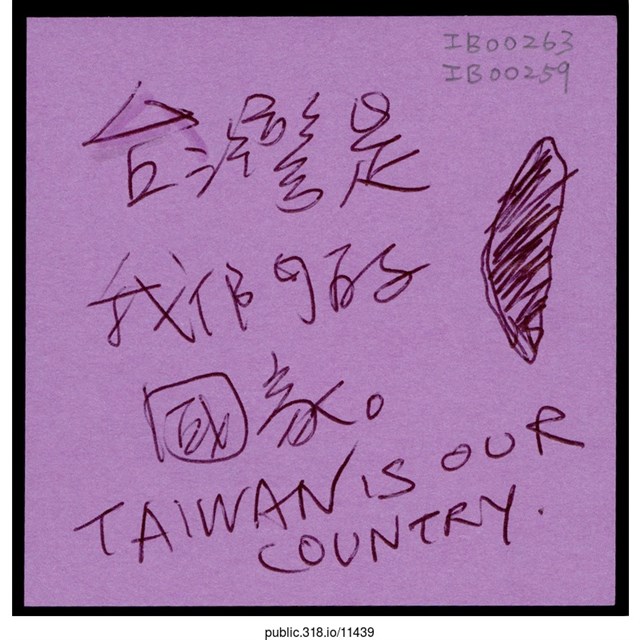 IB00263
IB00259
台灣是
我們的
國家。
TAIWAN IS OUR
COUNTRY.
public.318.io/11439